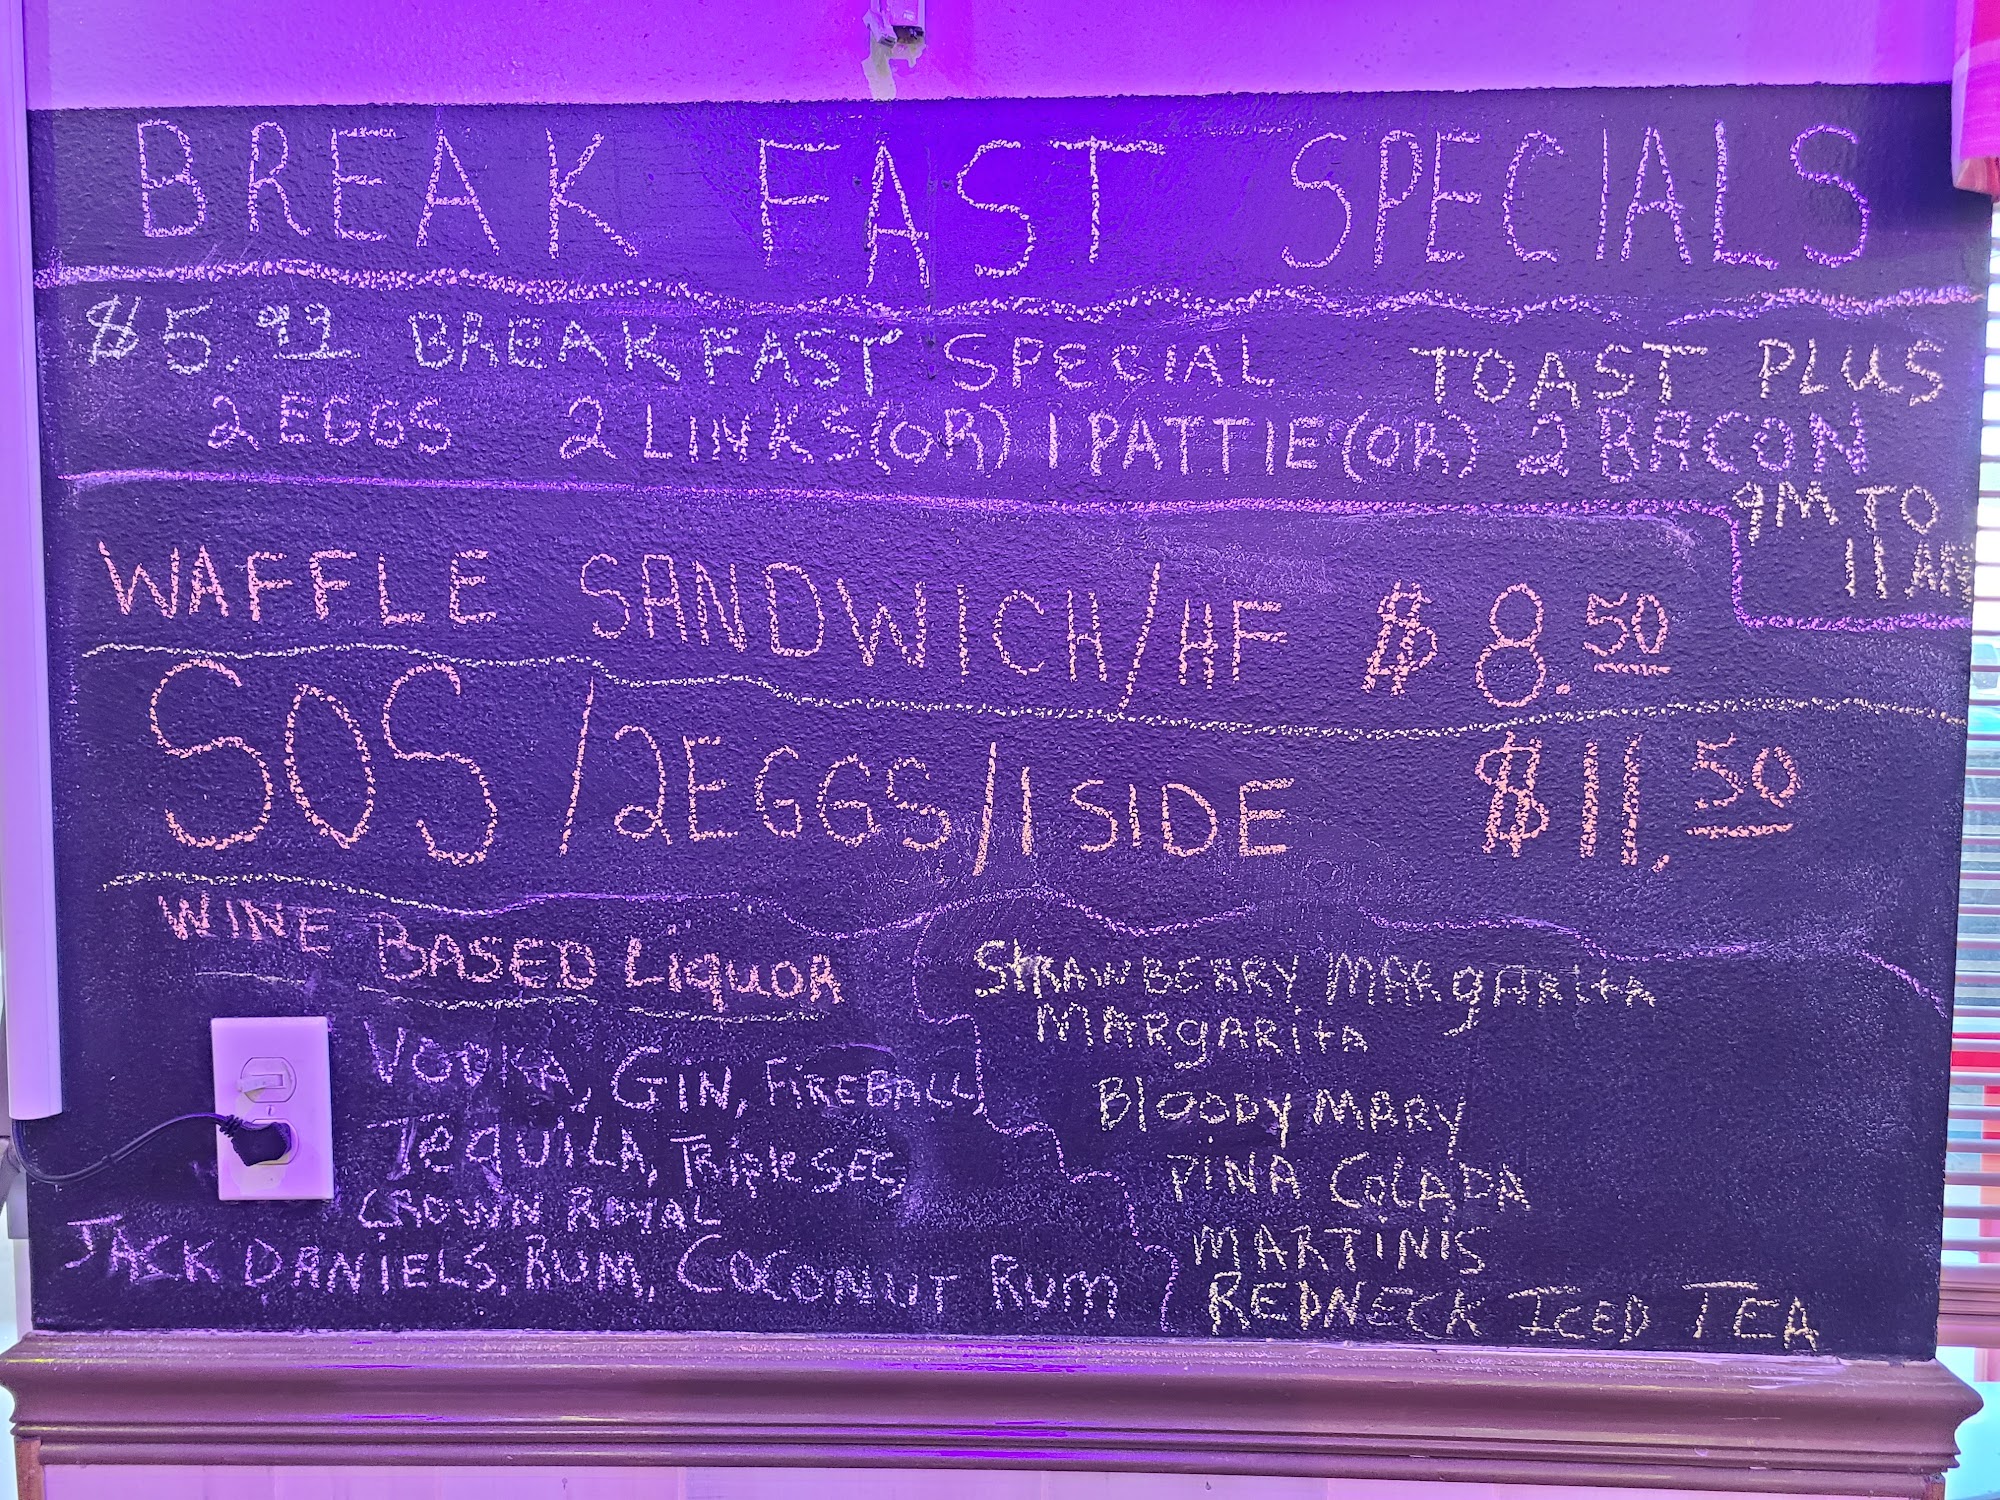 BREAK FAST SPECIALS
$5.99 BREAKFAST SPECIAL TOAST PLUS
2 EGGS 2 LINKS (OR) 1 PATTIE (OR) 2 BACON
9M TO
11 AM
WAFFLE SANDWICH/HF $8.50
SOS/2EGGS/1 SIDE $11,50
WINE BASED LiquoR
VODKA, GIN, FiREBALL,
TEQUILA, TRIPLE SEC,
CROWN ROYAL
JACK DANiELS, RUM, COCONUT RUM
STRAWBERRY MARgARitA
MARgARitA
BlOODY MARY
PiNA COLADA
MARTiNiS
REDNECK ICED TEA